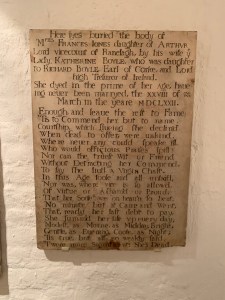 Here lyes buried the body of
Mrs FRANCES Jones daughter of ARTHUR
Lord viccount of Ranelagh, by his wife ye
Lady KATHERINE BOYLE, who was daughter
to RICHARD BOYLE Earl of Corke, and Lord
high Tresurer of Ireland.
She died in the prime of her Age hav
ing never been married, the XXVIII of
March in the yeare MDCLXXII.
Enough; and leave the rest to Fame.
Tis to Commend her but to name.
Courtship, which living she declin'd
When dead to offer were unkind.
Where never any could speake ill,
Who would officious Praises spill?
Nor can the truest Wit or Friend
Without Detracting her Commend.
To say she liv'd a Virgin Chast,
In this Age loose and all unlac't,
Nor was, where Vice is allow'd,
Of Virtue or asham'd or proud;
That her Soule was on heav'n so bent
No minute but it Came and went;
That, ready her last debt to pay
She Summ'd her life up every day;
Modest as Morne; as Midday bright;
Gentle as Evening; Cool as Night;
Tis true: but all so weakly said,
'Twere more Significant, She's Dead.